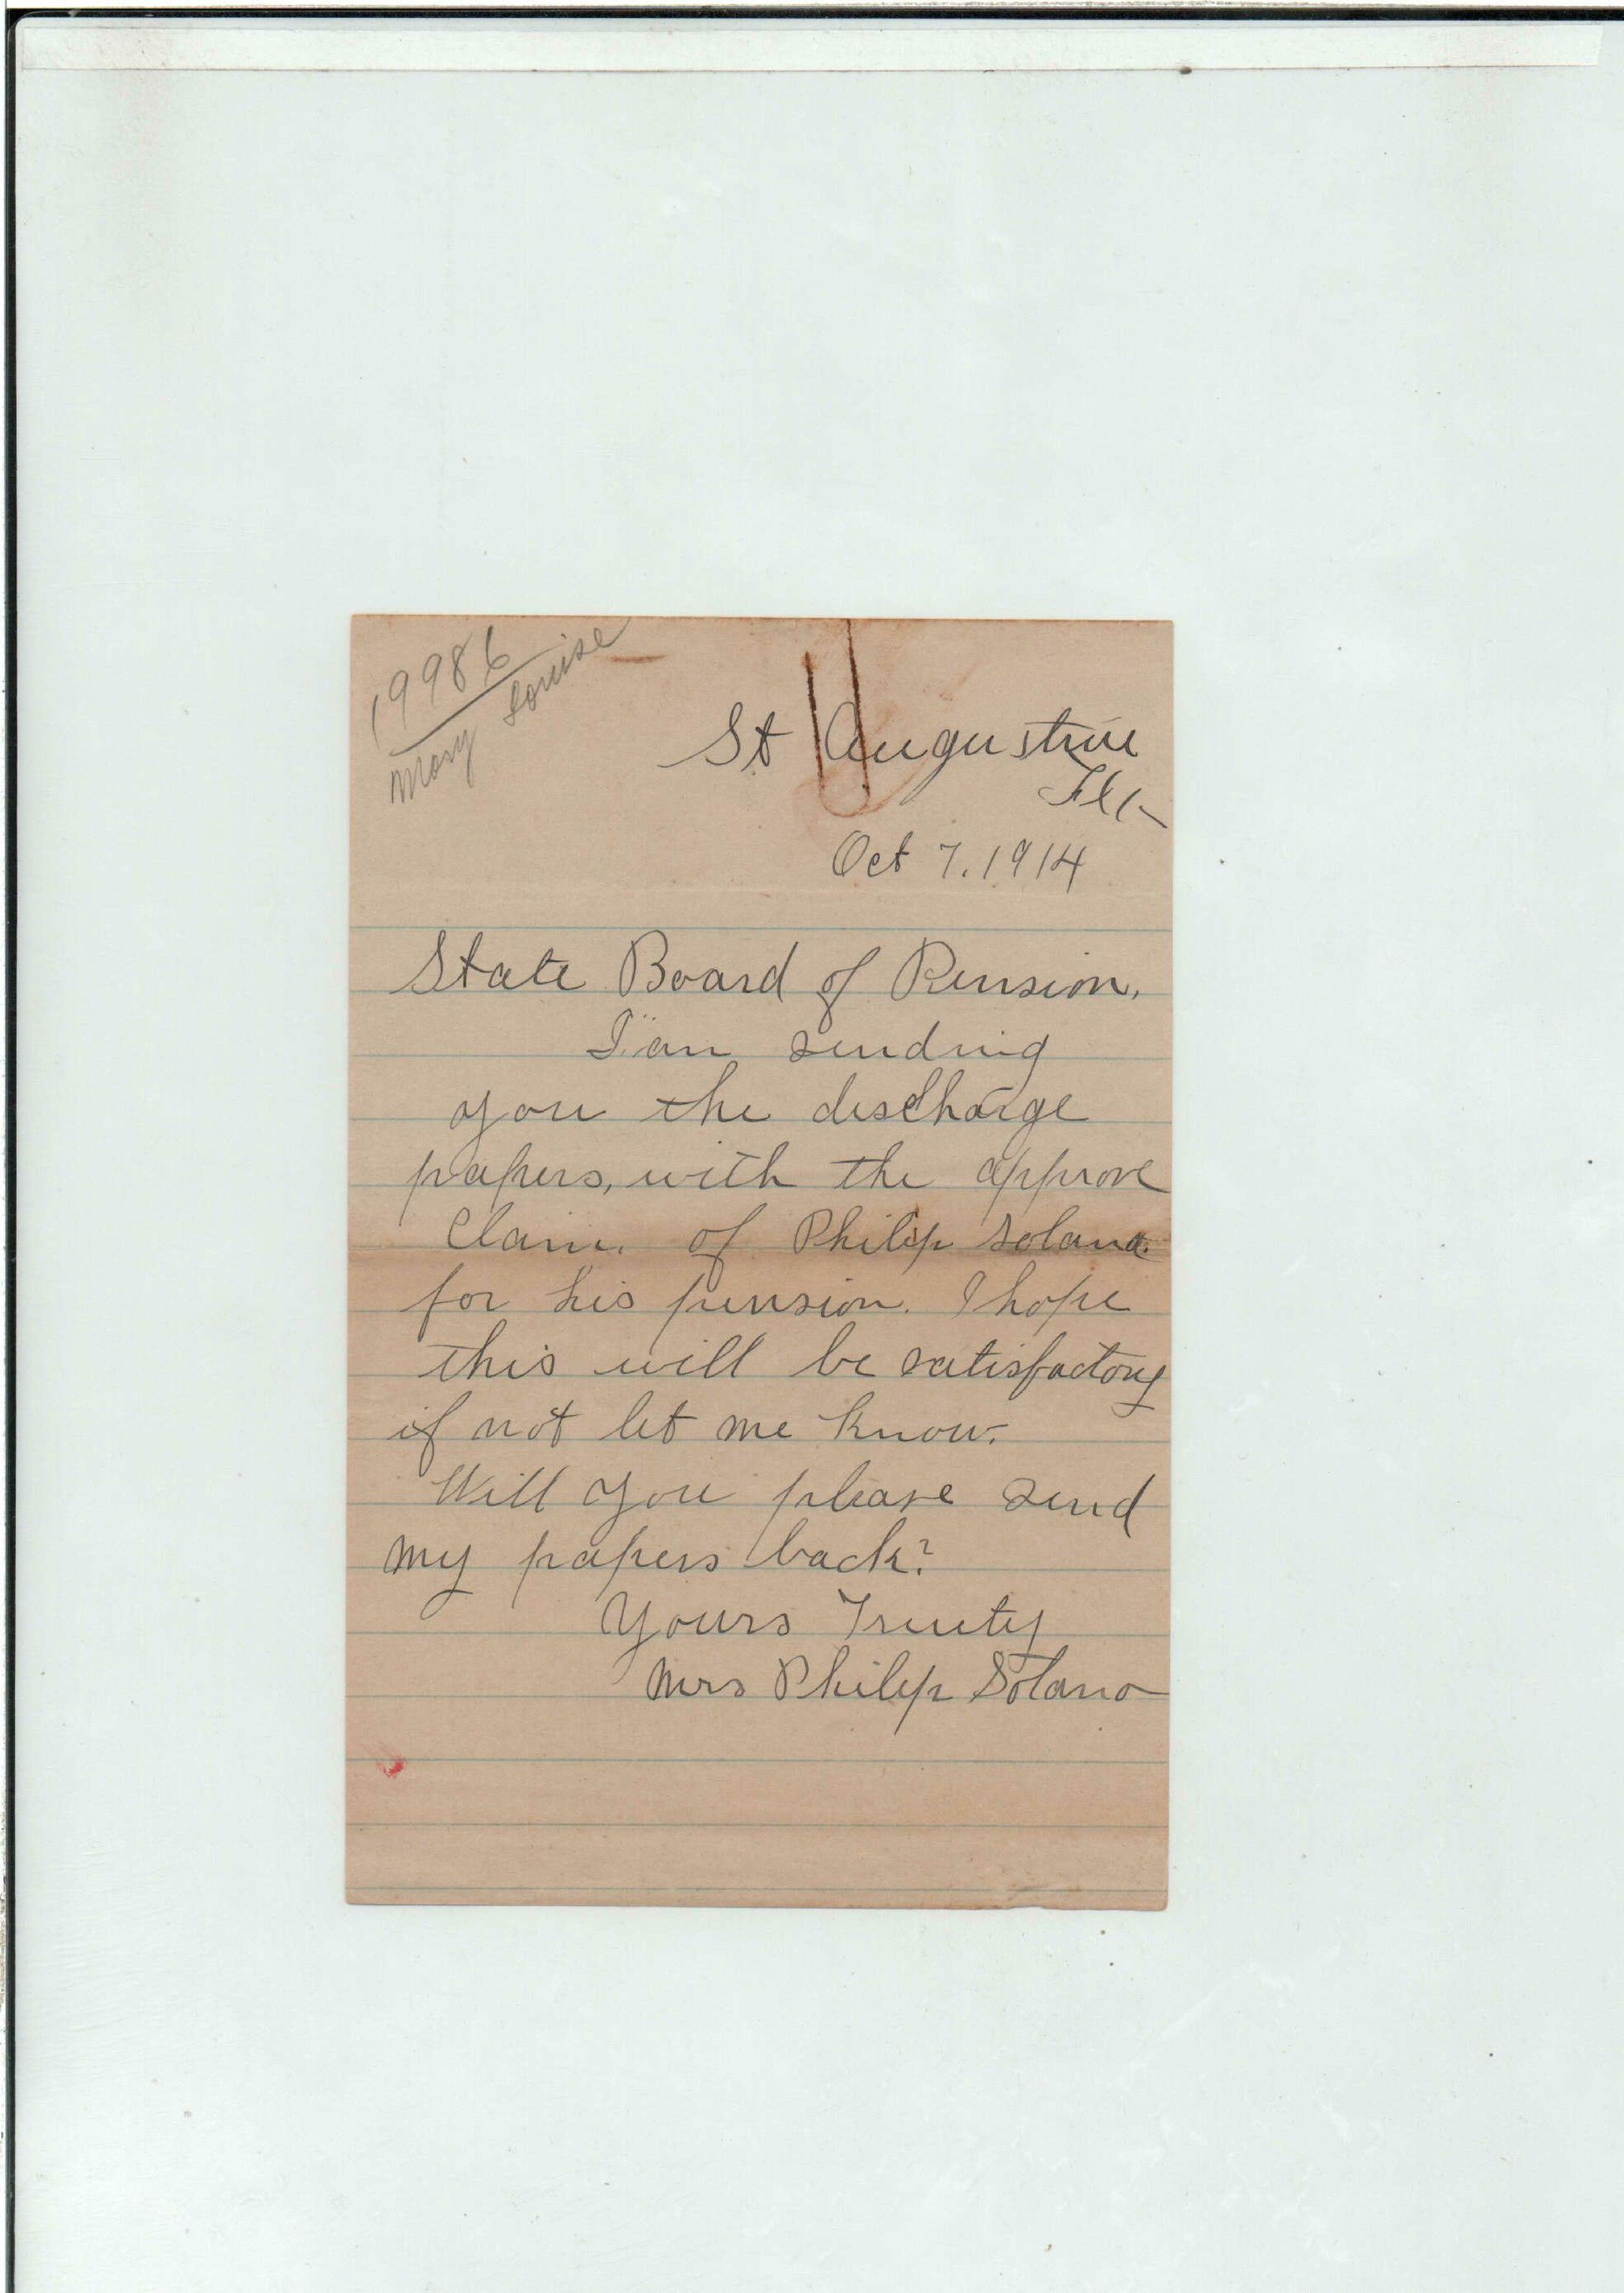 19986
Mary Louise
St Augustine
Fla
Oct 7. 1914
State Board of Pension.
I am sending
you the discharge
papers, with the approve
Claim. of Philip Solana.
for his pension. I hope
this will be satisfactory
if not let me know.
Will you please send
my papers back?
Yours Truely
Mrs Philip Solano